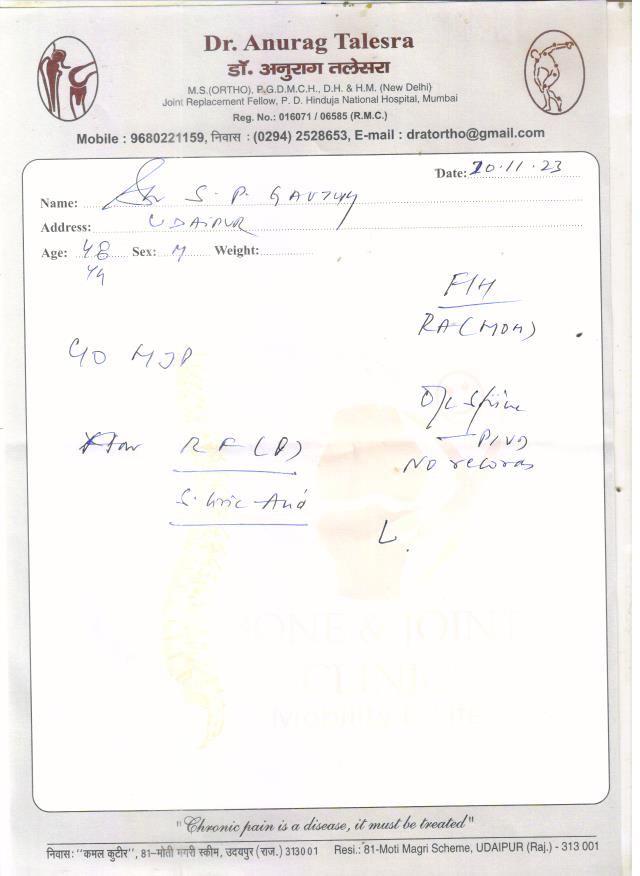 Dr. Anurag Talesra
डॉ. अनुराग तलेसरा
M.S.(ORTHO), P.G.D.M.C.H., D.H. & H.M. (New Delhi)
Joint Replacement Fellow, P. D. Hinduja National Hospital, Mumbai
Reg. No.: 016071 / 06585 (R.M.C.)
Mobile : 9680221159, निवास : (0294) 2528653, E-mail : dratortho@gmail.com
Date: 20.11.23
Name: S. P.
Address: UDAIPUR
Age: 48 Sex: M Weight:
F/H
RA (MOM)
C/O MJP
Spine
PIVD
No records
RF (P)
S. Uric Acid
L.
BONE & JOINT
CLINIC
Mobility
"Chronic pain is a disease, it must be treated"
निवास: "कमल कुटीर", 81-मोती मगरी स्कीम, उदयपुर (राज.) 313001 Resi.: 81-Moti Magri Scheme, UDAIPUR (Raj.) - 313 001